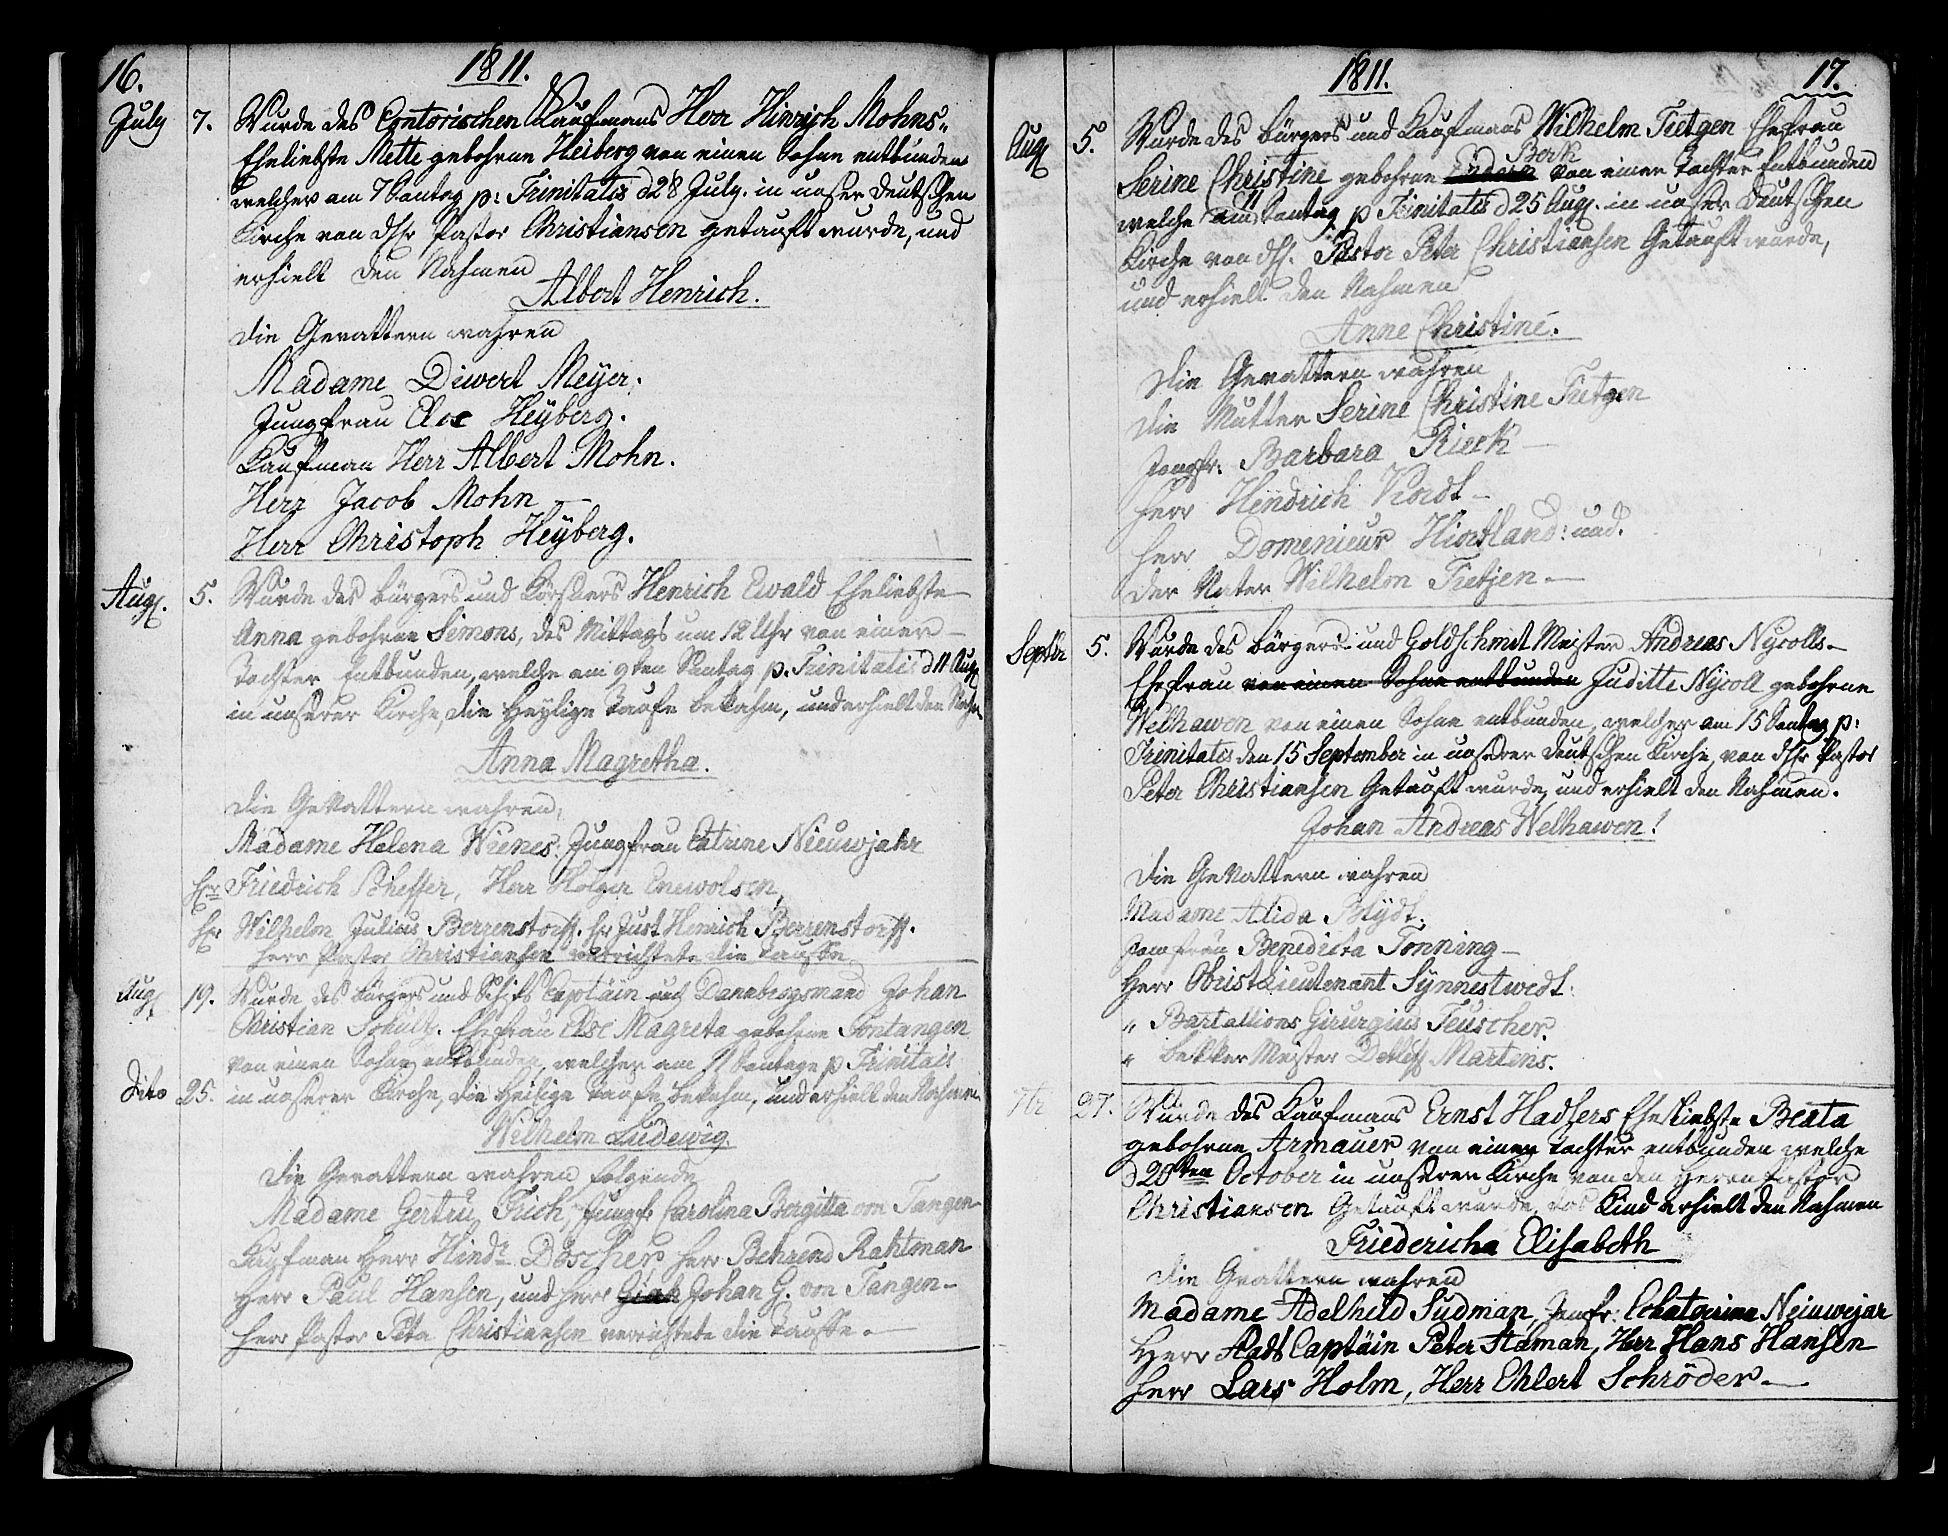 16.
1811.
July 7. Wurde des Contorischen Kaufmans Herr Hinrich Mohns„
Eheliebste Mette gebohrne Heiberg von einen Sohne entbunden
welcher am 7 Sontag p: Trinitatis d 28 July. in unser deutschen
Kirche von dHr Pastor Christiansen getauft wurde, und
erhielt den Nahmen
Albert Henrich.
die Gevattern wahren
Madame Diwert Meyer.
Jungfrau Else Heyberg.
Kaufman Herr Albert Mohn.
Herr Jacob Mohn —
Herr Christoph Heyberg.
Aug. 5. Wurde des bürgers und Körsners Henrich Ewald Eheliebste
Anna gebohrne Simons, des Mittags um 12 Uhr von einer
Tochter Entbunden, welche am 9ten Sontag p. Trinitatis d 11 Aug
in unserer Kirche, die Heylige Taufe bekahm, und erhielt den Nahmen
Anna Magretha.
die Gevattern wahren,
Madame Helena Wienes. Jungfrau Catrine Nieuwjahr
Hr Friedrich Pheffer, Herr Holger Enewolsen,
Hr Wilhelm Julius Berrenstorff. Hr Just Henrich Berrenstorff.
Herr Pastor Christiansen verrichtete die Tauffe.
Aug 19. Wurde des bürgers und Schifs Captäin und Dannebrogsmand Johan
Christian Schultz. Ehefrau Else Magreta gebohrne Tontangen
von einen Sohne entbunden, welcher am 11 Sontage p Trinitais
Dito 25. in unserer Kirche, die Heilige Taufe bekahm, und erhielt den Nahmen
Wilhelm Ludewig.
Die Gevattern wahren folgende
Madame Gertru Frich, Jungfr Carolina Bergitta von Tangen
Kaufman Herr Hindr Döscher Herr Behrend Rahtman
Herr Paul Hansen, und Herr Johan G. von Tangen —
Herr Pastor Peter Christiansen verrichtete die Tauffe. —
1811.
17.
Aug 5. Wurde des bürgers und Kaufmans Wilhelm Tietgen Ehefrau
Bock
Serine Christine gebohrne von einer Tochter Entbunden
welche am 11 Sontag p Trinitatis d 25 Aug. in unser deutschen
Kirche von dH. Pastor Peter Christiansen Getauft wurde,
und erhielt den Nahmen
Anne Christine.
Die Gevattern wahren
die Mutter Serine Christine Tietgen
Jungfr: Barbara Rieck —
Herr Hendrich Kordt —
Herr Domenicus Hiortland: und.
der Vater Wilhelm Tietjen. —
Septbr 5. Wurde des bürgers und Goldschmit Meister Andreas Nycolls —
Ehefrau von einen Sohne entbunden Juditte Nycoll gebohrne
Welhawen von einen Sohne entbunden, welcher am 15 Sontag p:
Trinitatis den 15 September in unserer deutschen Kirche, von dHr Pastor
Peter Christiansen Getauft wurde, und erhielt den Nahmen.
Johan Andreas Welhawen!
Die Gevattern wahren
Madame Alida Blydt.
Jomfrau Benedicta Tonning —
Herr Obristlieutenant Synnestwedt.
„ Bartallions Girurgius Teuscher.
„ bekker Meister Detleff Martens.
7br 27. Wurde des Kaufmans Ernst Hadlers Eheliebste Beata
gebohrne Armauer von einer Tochter entbunden welche
d 20ten October in unserer Kirche von den Herrn Pastor
Christiansen Getauft wurde, das Kind erhielt den Nahmen
Friedericha Elisabeth
die Gvattern wahren
Madame Adelheid Sudman, Jomfr: Cchatarina Neiuwejar
Herr Stads Captäin Peter Staman, Herr Hans Hansen
Herr Lars Holm, Herr Ehlert Schröder —